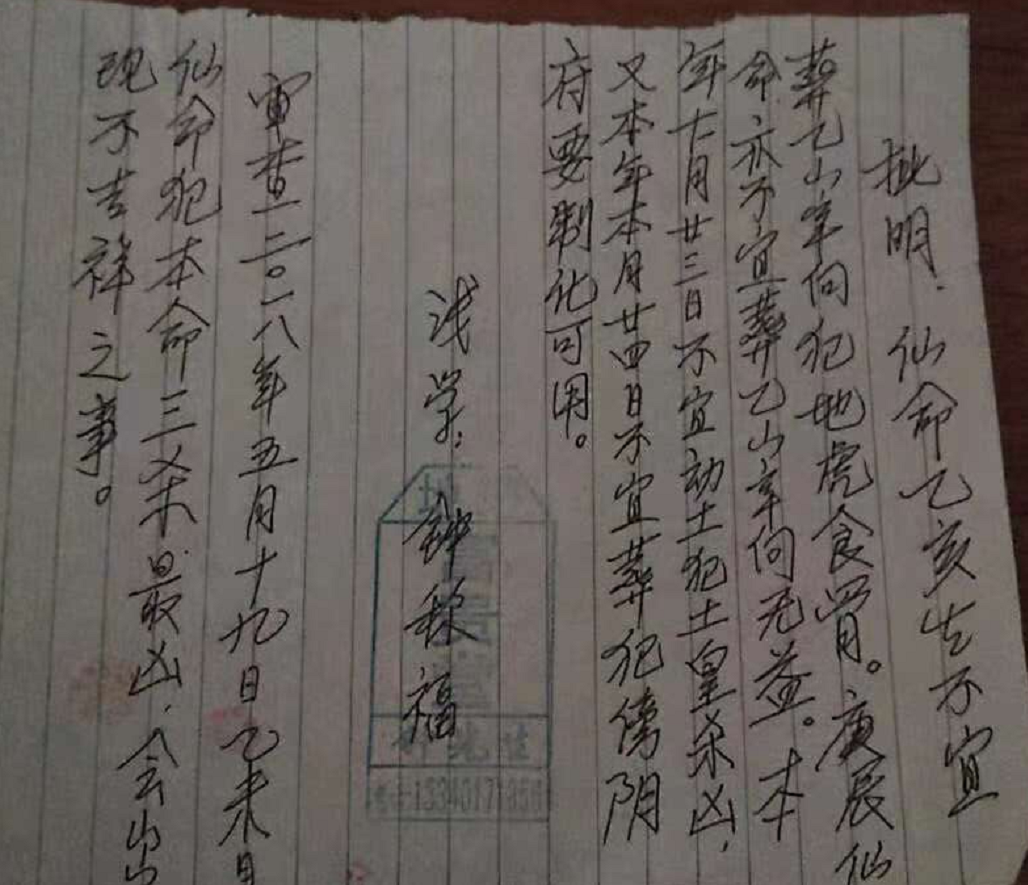 批明.仙命乙亥生不宜
葬乙山辛向犯地虎食胃。庚辰仙
命亦不宜葬乙山辛向无益。本
年十月廿三日不宜动土犯土皇杀凶,
又本年本月廿四日不宜葬犯傍阴
府要制化可用。
浅学:钟稼福
审查二〇一八年五月十九日乙未日
仙命犯本命三义杀最凶,会出
现不吉祥之事。